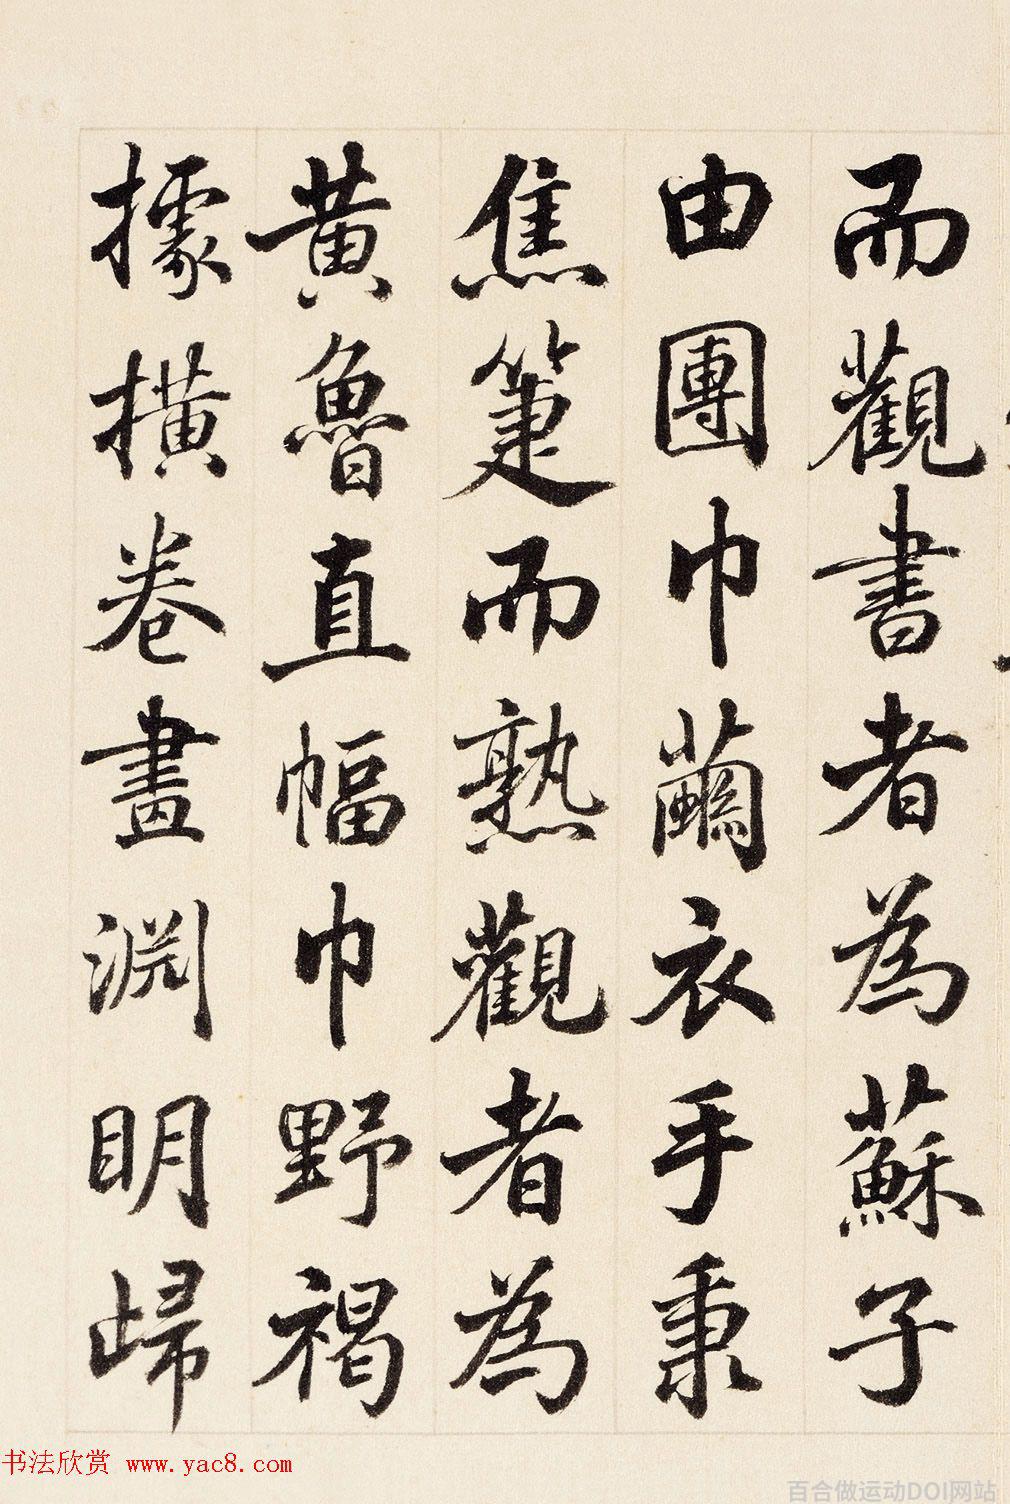 而觀書者為蘇子
由團巾繭衣手秉
焦箑而熟觀者為
黃魯直幅巾野褐
據橫卷畫淵明歸
书法欣赏 www.yac8.com
百合做运动DOI网站